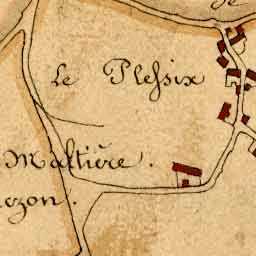 Le Plessix
Maltière.
ezon.